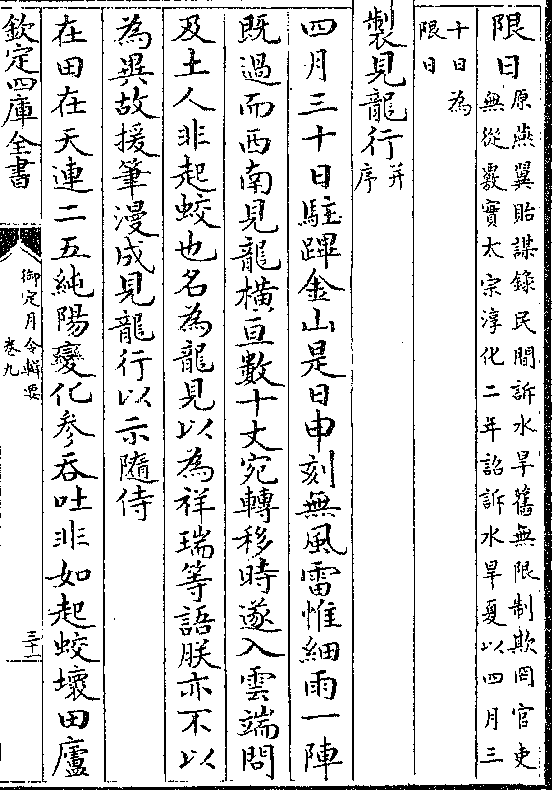 限日原燕翼貽謀錄民間訴水旱舊無限制欺罔官吏
無從覈實太宗淳化二年詔訴水旱夏以四月三
十日為
限日
製見龍行并序
四月三十日駐蹕金山是日申刻無風雷惟細雨一陣
既過而西南見龍橫亘數十丈宛轉移時遂入雲端問
及土人非起蛟也名為龍見以為祥瑞等語朕亦不以
為異故援筆漫成見龍行以示隨侍
在田在天連二五純陽變化參吞吐非如起蛟壞田廬
欽定四庫全書
御定月令輯要
卷九
三十一